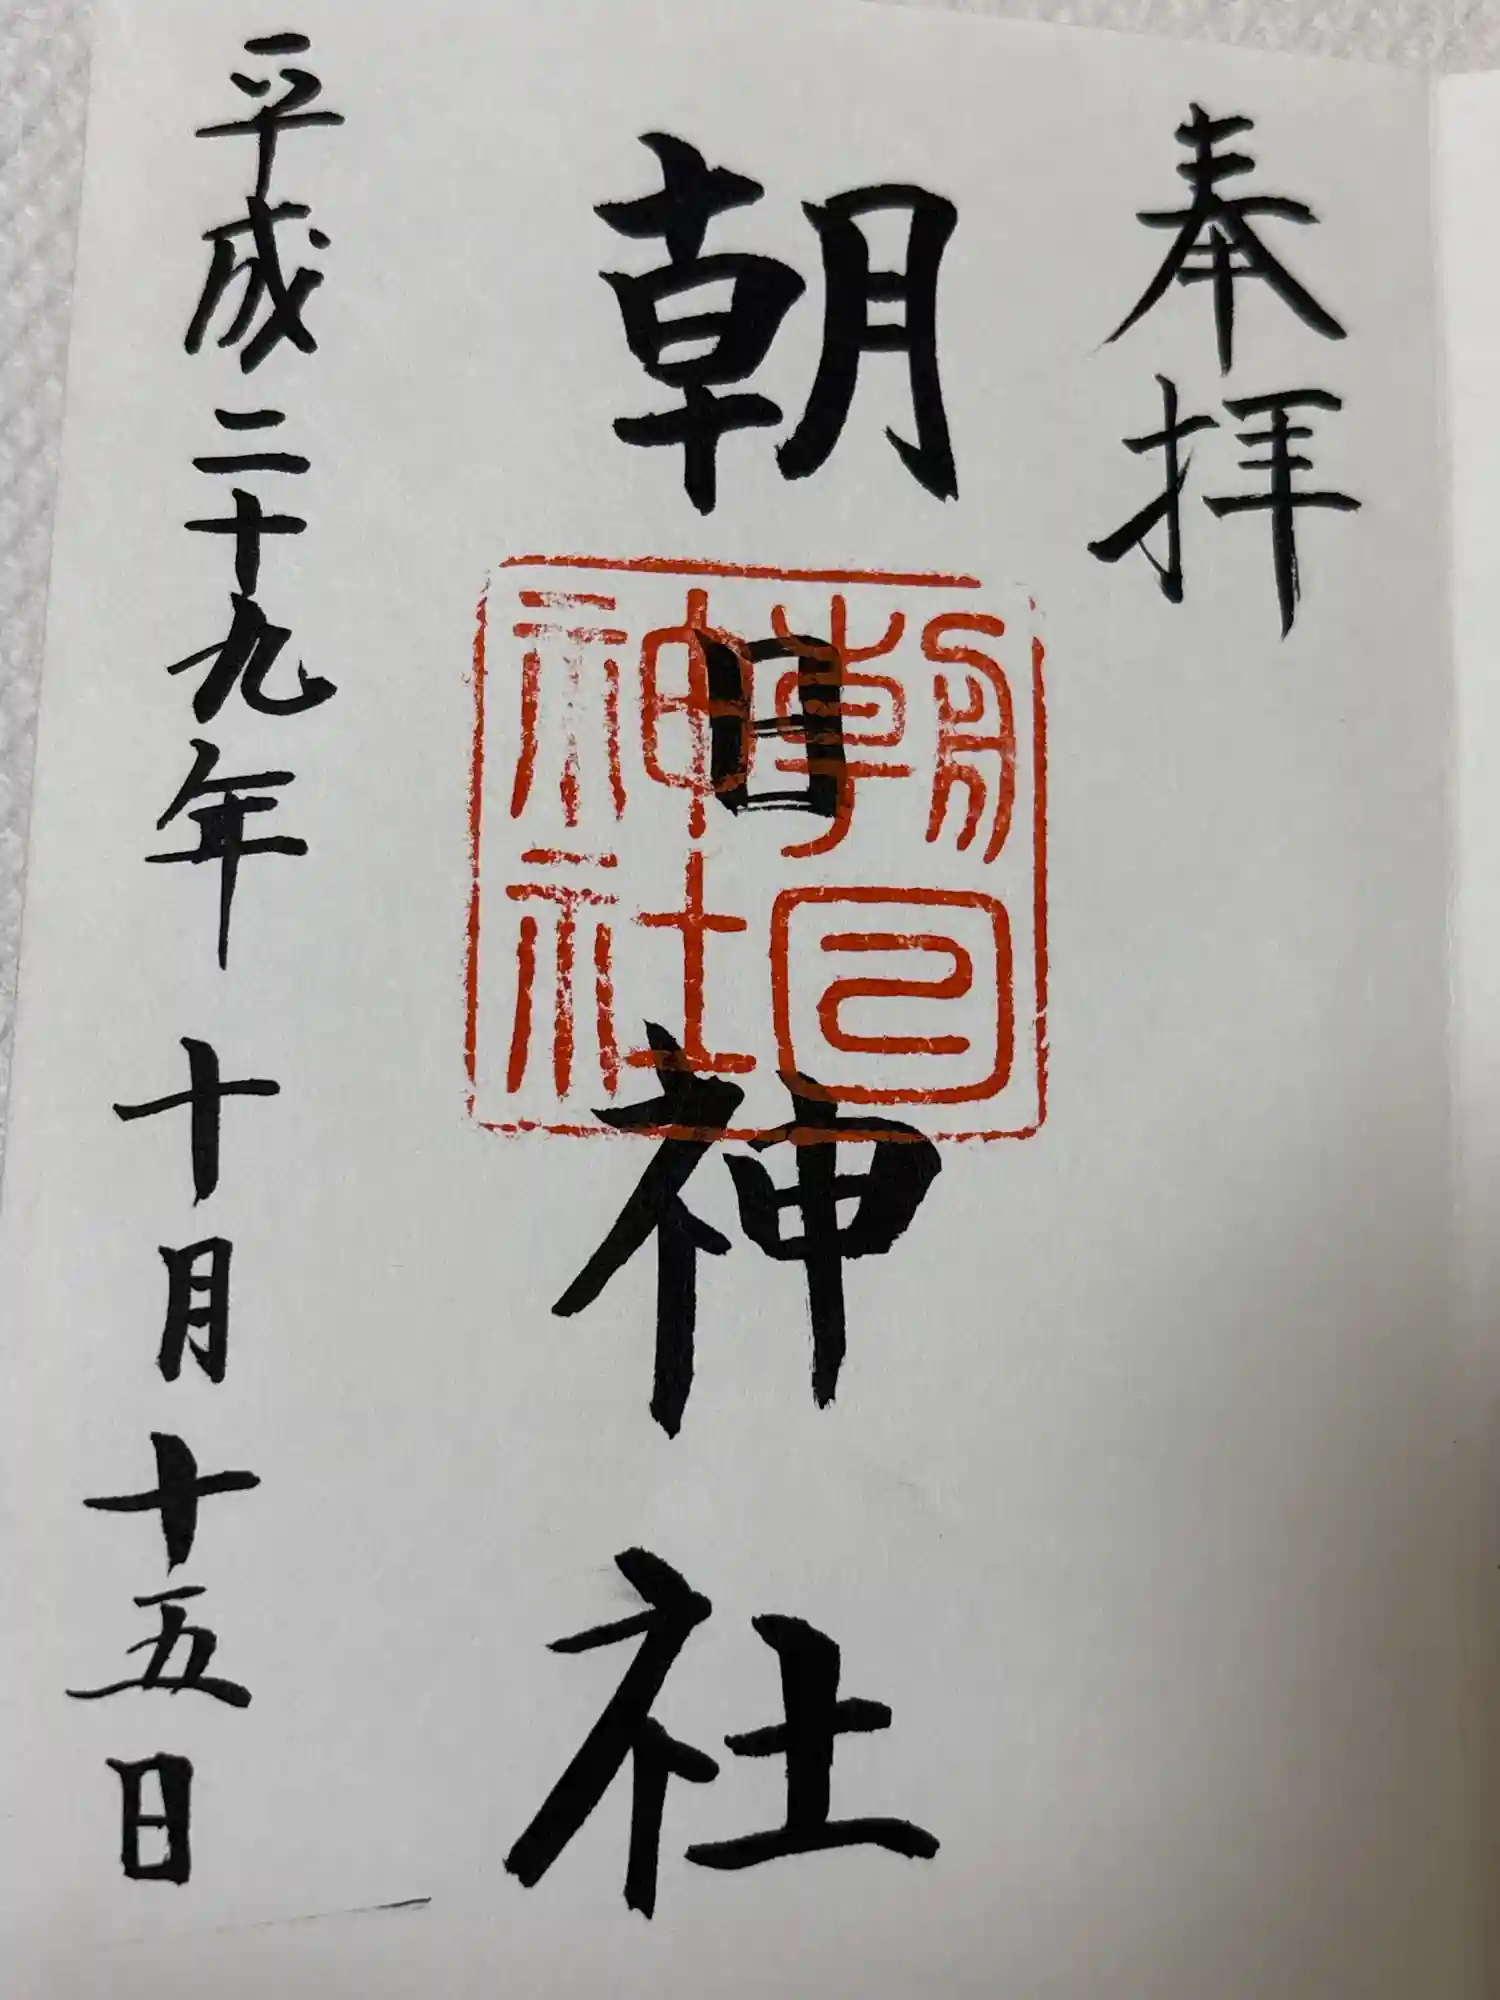 奉拝
朝日神社
朝日
神社
平成二十九年十月十五日